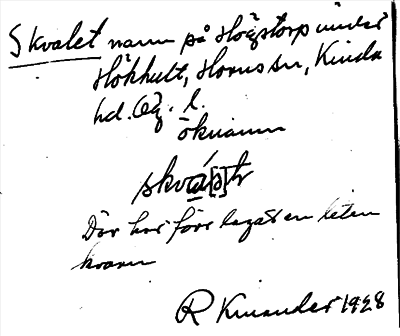 Skvalet namn på Högstorp under
Hökhult, Horns sn, Kinda
hd. Ög. l.
öknamn
skvá[ə]tr
Där har förr legat en liten
kvarn
R Kinander 1928